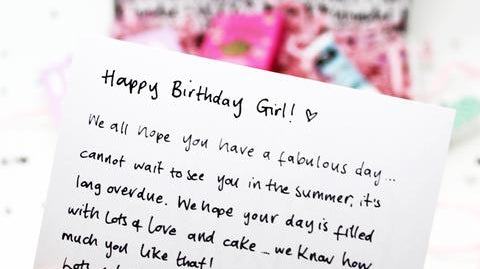 Happy Birthday Girl! ♡
We all hope you have a fabulous day...
cannot wait to see you in the summer, it's
long overdue. We hope your day is filled
with lots of love and cake - we know how
much you like that!